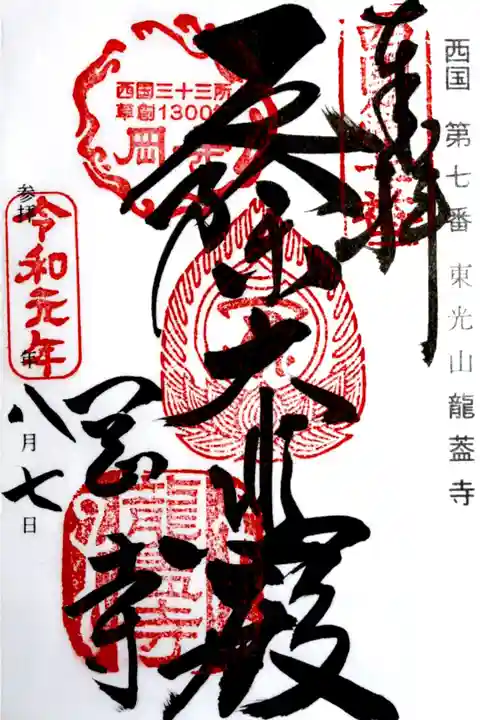 西国 第七番 東光山 龍蓋寺
奉拝
西国三十三所
草創1300年
岡寺
厄除大悲殿
岡寺
龍蓋寺
参拝 令和元年
八月七日